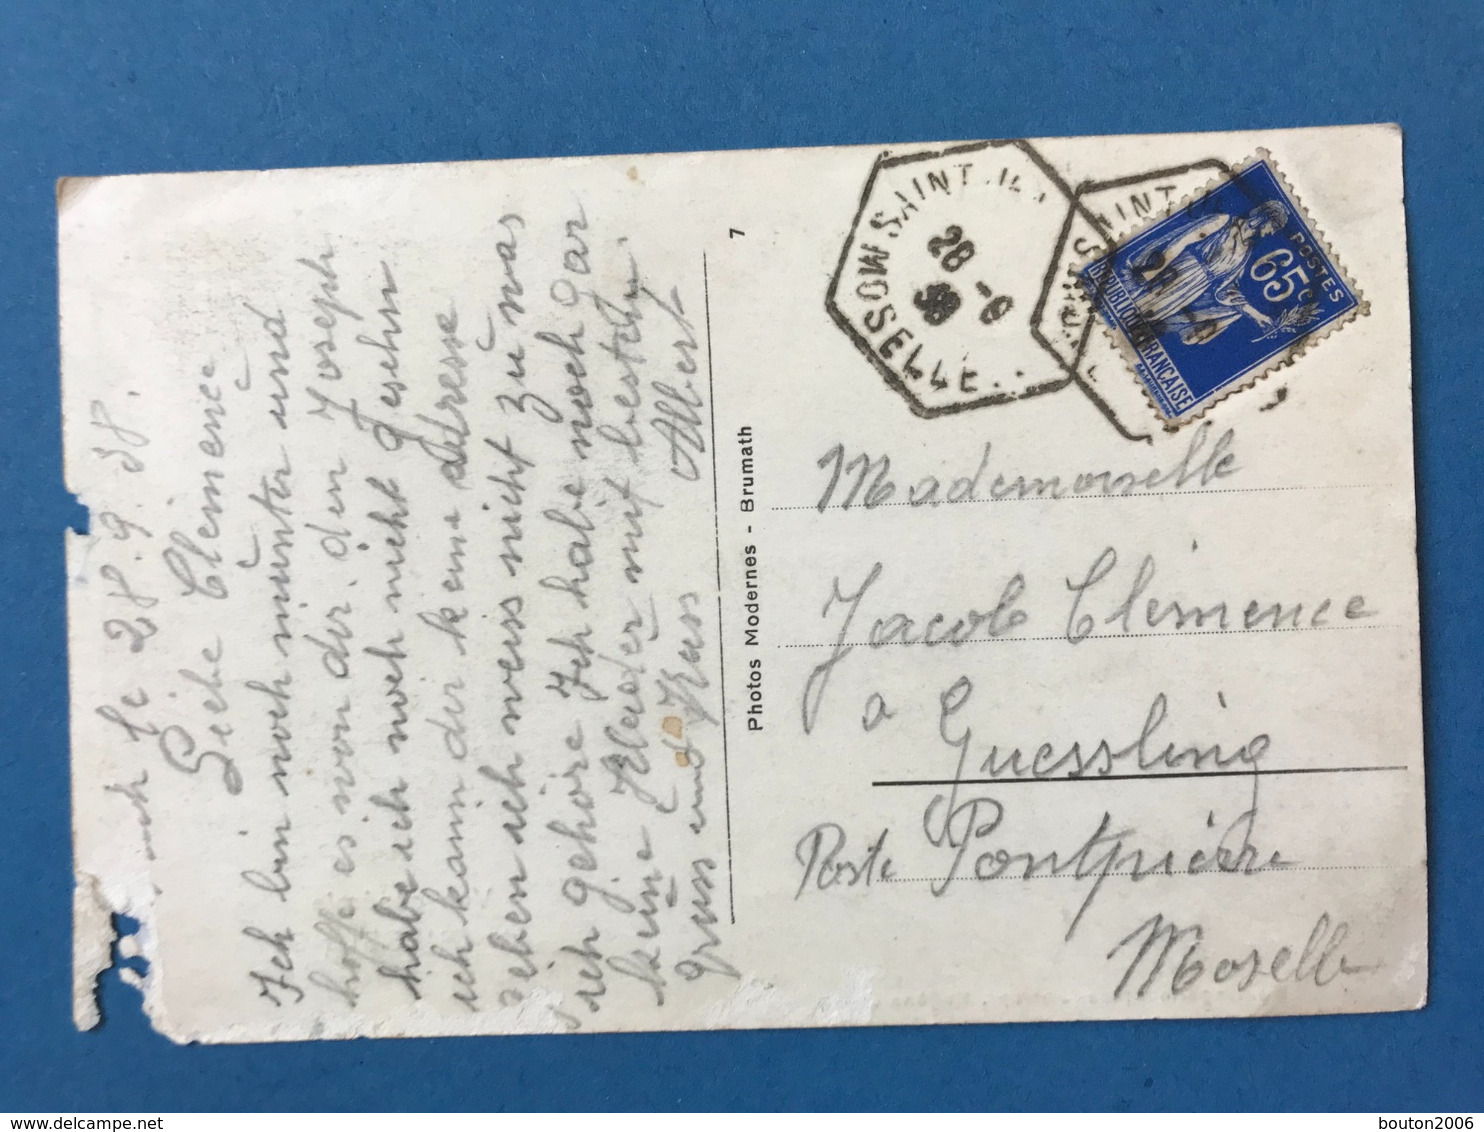 le 28.9.38.
Liebe Clemence
Ich bin noch munter und
hoffe es von dir. den Joseph
habe ich noch nicht gsehn
ich kann dir keine adresse
ich weis nicht zu was
ich gehöre Ich habe noch gar
keine Kleider mit bestem
Gruss und Kuss Albert
7
Photos Modernes - Brumath
SAINT
MOSELLE
28 -9
38
SAINT
POSTES
65c
RÉPUBLIQUE FRANÇAISE
Mademoiselle
Jacob Clémence
a Guessling
Poste Pontpierre
Moselle
delcampe.net
bouton2006